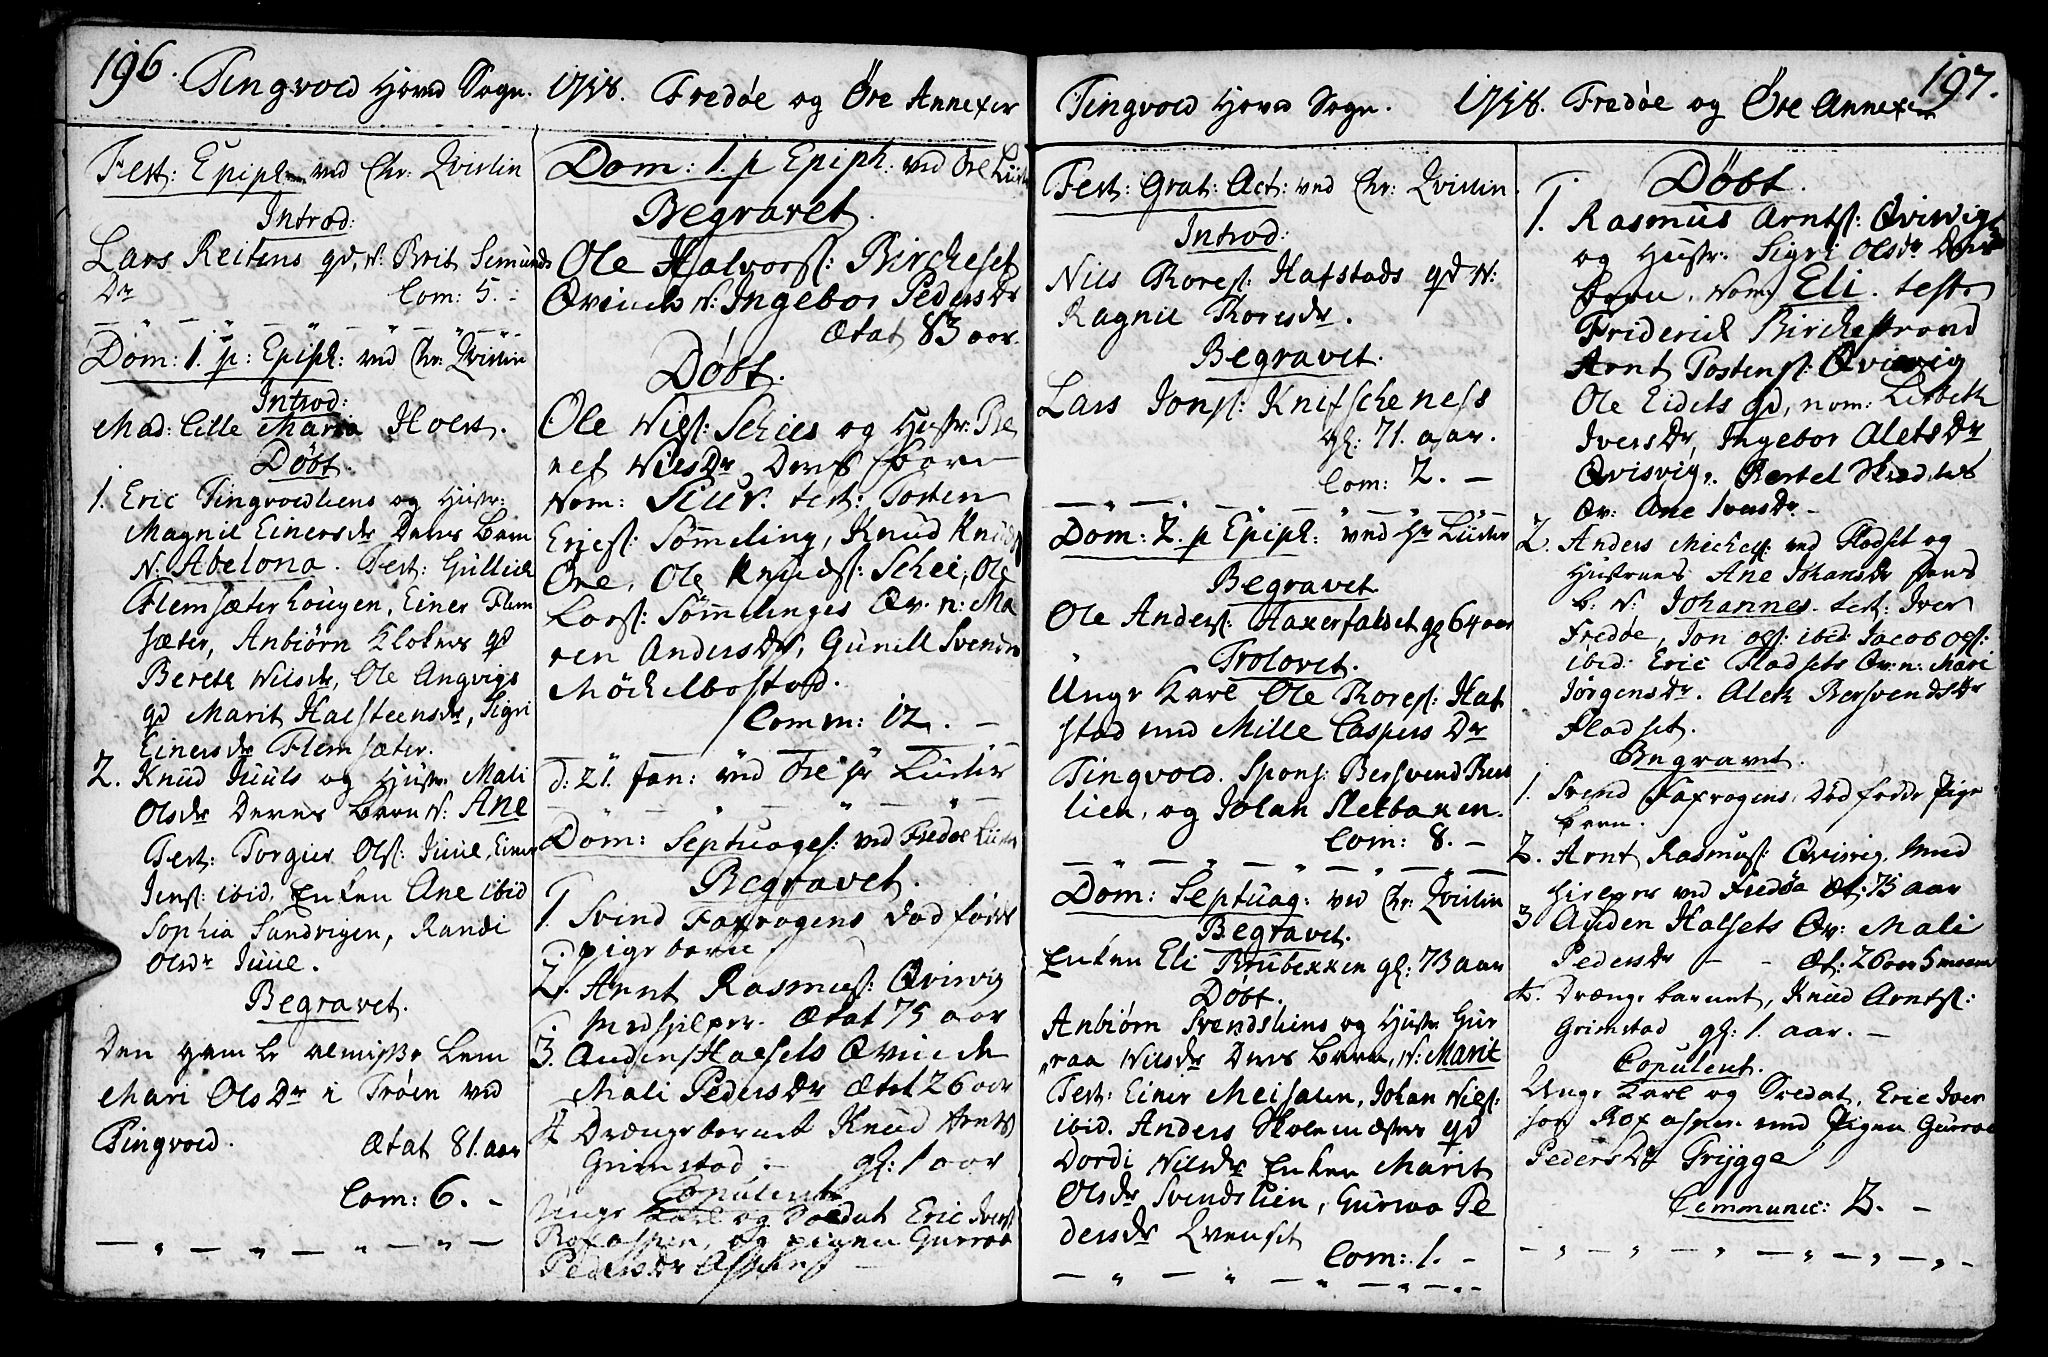 196. Tingvold Hoved Sogn. 1758. Fredøe og Øre Annexer
Fest: Epiph: ved Chr: Qvislin
Introd:
Lars Reitens qd, N: Brit Simunds
Dr Com: 5. -
Dom: 1. p: Epiph: ved Chr: Qvislin
Introd:
Mad: Cille Maria Holst.
Døbt.
1. Eric Tingvoldliens og Hustr:
Magnil Einersdr Deres Barn
N. Abelona. Test: Gullich
Flemsæterhougen, Einer Flem
sæter, Anbiørn Klokers qd
Berete Nilsdr, Ole Angvigs
qd Marit Halsteensdr, Sigri
Einersdr Flemsæter.
2. Knud Juuls og Hustr Mali
Olsdr Deres Barn N: Ane
Test: Torgier Ols: Juul, Einer
Jens: ibid, Enken Ane ibid
Sophia Sandvigen, Randi
Olsdr Juul.
Begravet.
Den gamle almisse Lem
Mari Ols Dr i Trøen ved
Tingvold. Ætat 81. aar
Com: 6. -
Dom: 1. p Epiph: ved Øre Lüster
Begravet.
Ole Halvors: Bircheset
Qvinde N: Ingebor Peders Dr
Ætat 83 aar.
Døbt.
Ole Nils: Schies og Hustr: Be
ret Nils Dr Deres Barn
Nom: Siur. test: Tosten
Erics: Sømeling, Knud Knuds
Øre, Ole Knuds: Schei, Ole
Lars: Sømelinges Qv. n: Ma
ren Anders Dr, Gunill Svends
Møchelbostad.
Comm: 12. -
d: 21. Jan: ved Øre Hr Lüster
Dom: Septuages: ved Fredøe Lüster
Begravet.
1. Svend Faxvogens dødfødt
pigebarn
2. Arnt Rasmus: Qvisvig
Medhielper. Ætat 75 aar
3. Audens Halsets Qvinde
Mali Peders Dr Ætat 26 aar
4 Drængebarnet Knud Arnts
Grimstad: - gl: 1 aar
Copulent
Unge Karl og Soldat Eric Ivers
Roxaspen, og pigen Gurroe
Peders Dr Aspen
197.
Tingvold Hoved Sogn. 1758. Fredøe og Øre Annexer
Fest: Grat: Act: ved Chr: Qvislin.
Introd:
Nils Thores: Hafstads qd N:
Ragnil Thoresdr.
Begravet.
Lars Jons: Knifscheness
gl: 71. aar.
Com: 2. -
Dom: 2. p Epiph: ved Hr Lüster
Begravet
Ole Anders: Haxerfaldet gl 64 aar
Trolovet.
Unge Karl Ole Thores: Haf
stad med Mille Caspers Dr
Tingvold. Spons: Bersvend
lien, og Johan Sletbaxen.
Com: 8. -
Dom: Septuag: ved Chr: Qvislin
Begravet.
Enken Eli Brubexxen gl: 73 aar
Døbt.
Anbiørn Svendsliens og Hustr Gur
raa Nilsdr Deres Barn, N: Marit
Test: Einer Meisalen, Johan Nils:
ibid. Anders Holemesters qd
Dordi Nilsdr Enken Marit
Olsdr Svendslien, Gurroa Pe
dersdr Qvenset
Com: 1. -
Døbt.
1. Rasmus Arnts: Qvisvig
og Hustr: Sigri Olsdr Deres
Barn, Nom: Eli. test.
Friderich Birchestrand
Arnt Tostens: Qvisvig
Ole Eidets qd, nom: Lisbeth
Ivers Dr, Ingebor Alets Dr
Qvisvig, Bertel
Qv: Ane Iversdr -
2. Anders Michels: ved Fladset og
Hustrues Ane Johansdr Deres
b: N: Johannes. test: Iver
Fredøe, Jon Ols: ibid Jacob Ols:
ibid: Eric Fladsets Qv: n: Mari
Jørgensdr. Aleth Bersvendsdr
Fladset.
Begravet.
1. Svend Faxvogens, Dødfødde Pige
barn.
2. Arnt Rasmus: Qvisvig, Med
hielper ved Fredøe Æt: 75 aar
3 Auden Halsets Qv: Mali
Pedersdr - - Æt: 26 aar 5 maan
4. Drænge barnet, Knud Arnts:
Grimstad gl: 1. aar. -
Copulent.
Unge Karl og Soldat, Eric Iver
søn Roxaspen med Pigen Gurroe
Peders Dr Trygge
Communic: 3. -